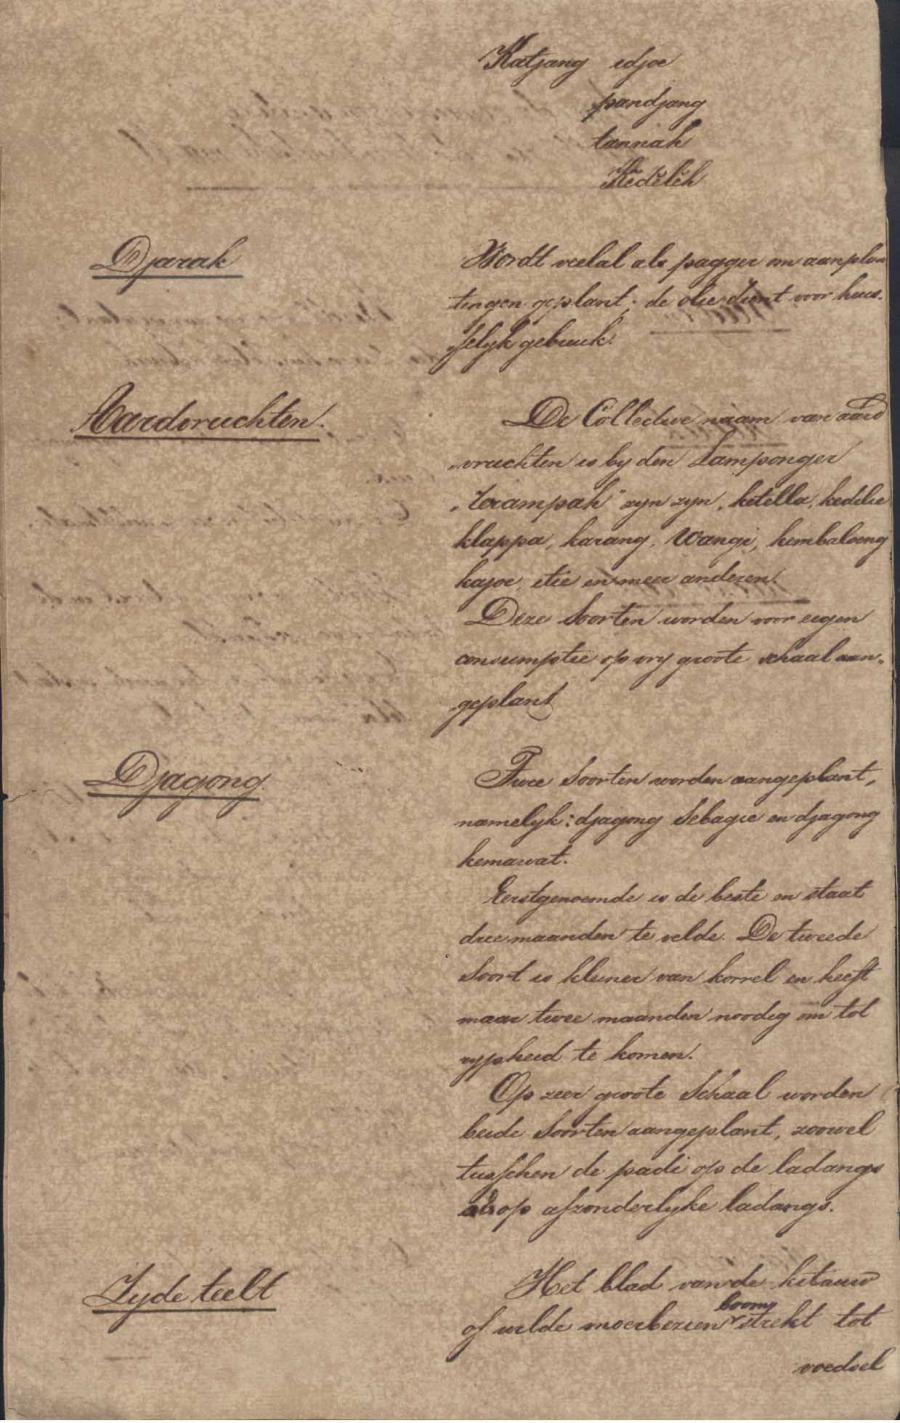 Katjang idjoe
pandjang
tannah
Kedeleh
Djarak
Wordt veelal als pagger om aanplan
tingen geplant; de olie dient voor huis
selyk gebruik.
Aardvruchten.
De Collective naam van aard
vruchten is by den Lamponger
zyn zyn, ketella, kedelie
klappa, karang, wangi, kembaloeng
kajoe, en meer anderen.
Deze soorten worden voor eigen
consumptie op vry groote schaal aan-
geplant
Djagong
Twee soorten worden aangeplant,
namelyk: djagong Sebagie en djagong
kemawat.
Eerstgenoemde is de beste en staat
drie maanden te velde. De tweede
soort is kleiner van korrel en heeft
maar twee maanden noodig om tot
rypheid te komen.
Op zeer groote Schaal worden
beide soorten aangeplant, zoowel
tusschen de padi op de ladangs
als op afzonderlyke ladangs.
Zyde teelt
Het blad van de kitauw
of wilde moerbezien boom strekt tot
voedsel